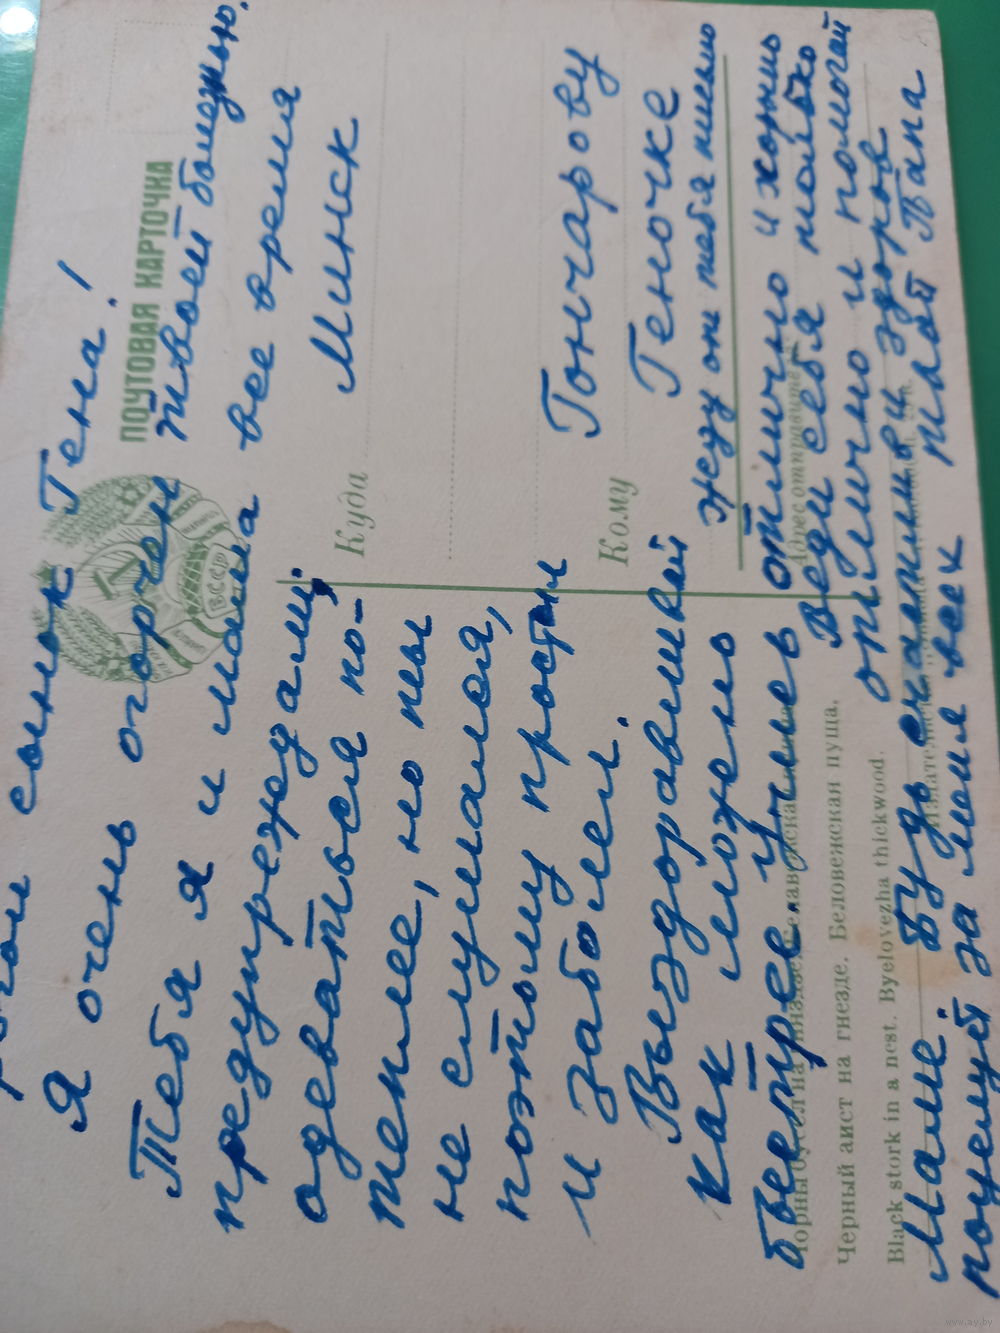 сынок Гена!
Я очень огорчен твоей болезнью.
Тебя я и мама все время
предупреждали,
одеваться по-
теплее, но ты
не слушался,
поэтому простыл
и заболел.
Выздоравливай
как можно
быстрее, учись отлично и хорошо
Веди себя только
отлично и помогай
Маме. Будь здоров
поцелуй за меня всех твой Папа
жду от тебя письмо
ПОЧТОВАЯ КАРТОЧКА
БССР
Куда
Минск
Кому
Гончарову
Геночке
Адрес отправителя
Черный аист на гнезде. Беловежская пуща.
Black stork in a nest. Byelovezha thickwood.
www.ay.by